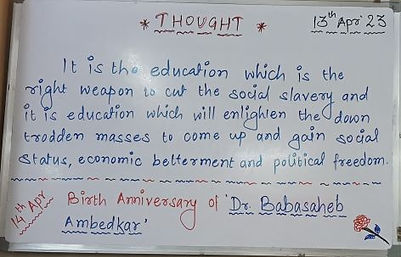 * THOUGHT *
13th Apr 23
It is the education which is the
right weapon to cut the social slavery and
it is education which will enlighten the down
trodden masses to come up and gain social
status, economic betterment and political freedom.
14th Apr
Birth Anniversary of 'Dr. Babasaheb
Ambedkar'